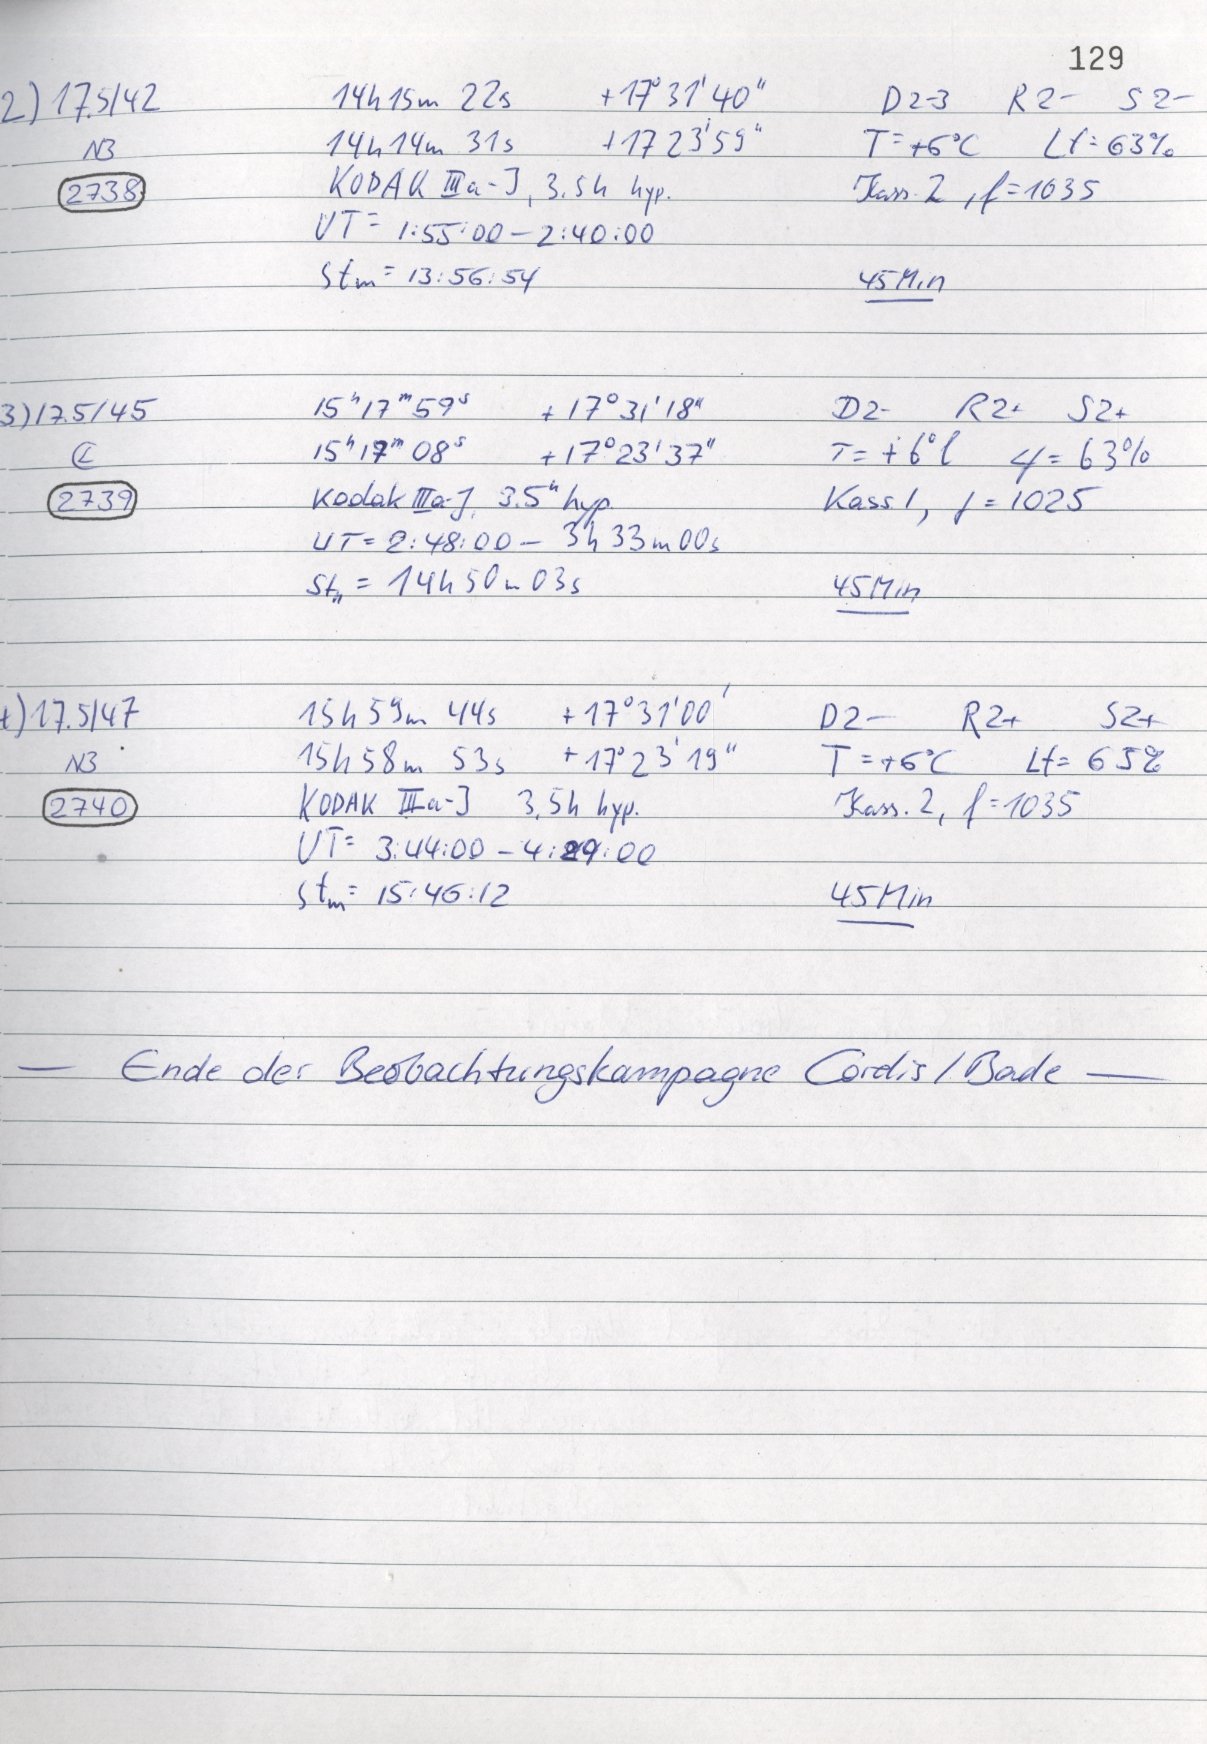 129
2) 17.5/42 14h 15m 22s +17°31'40" D2-3 R2- S2-
N3 14h 14m 31s +17 23'59" T=+6°C Lf=63%
2738 KODAK IIIa-J, 3.5h hyp. Kass. 2, f=1035
UT= 1:55:00 – 2:40:00
Stm= 13:56:54 45 Min
3) 17.5/45 15h 17m 59s +17°31'18" D2- R2+ S2+
15h 17m 08s +17°23'37" T=+6°C Lf=63%
2739 Kodak IIIa-J, 3.5h hyp. Kass 1, f=1025
UT= 2:48:00 – 3h 33m 00s
Stm = 14h 50m 03s 45 Min
4) 17.5/47 15h 59m 44s +17°31'00' D2- R2+ S2+
N3 15h 58m 53s +17°23'19" T=+6°C Lf=65%
2740 KODAK IIIa-J 3,5h hyp. Kass. 2, f=1035
UT= 3:44:00 – 4:29:00
Stm= 15:46:12 45 Min
— Ende der Beobachtungskampagne Cordis/Bade —